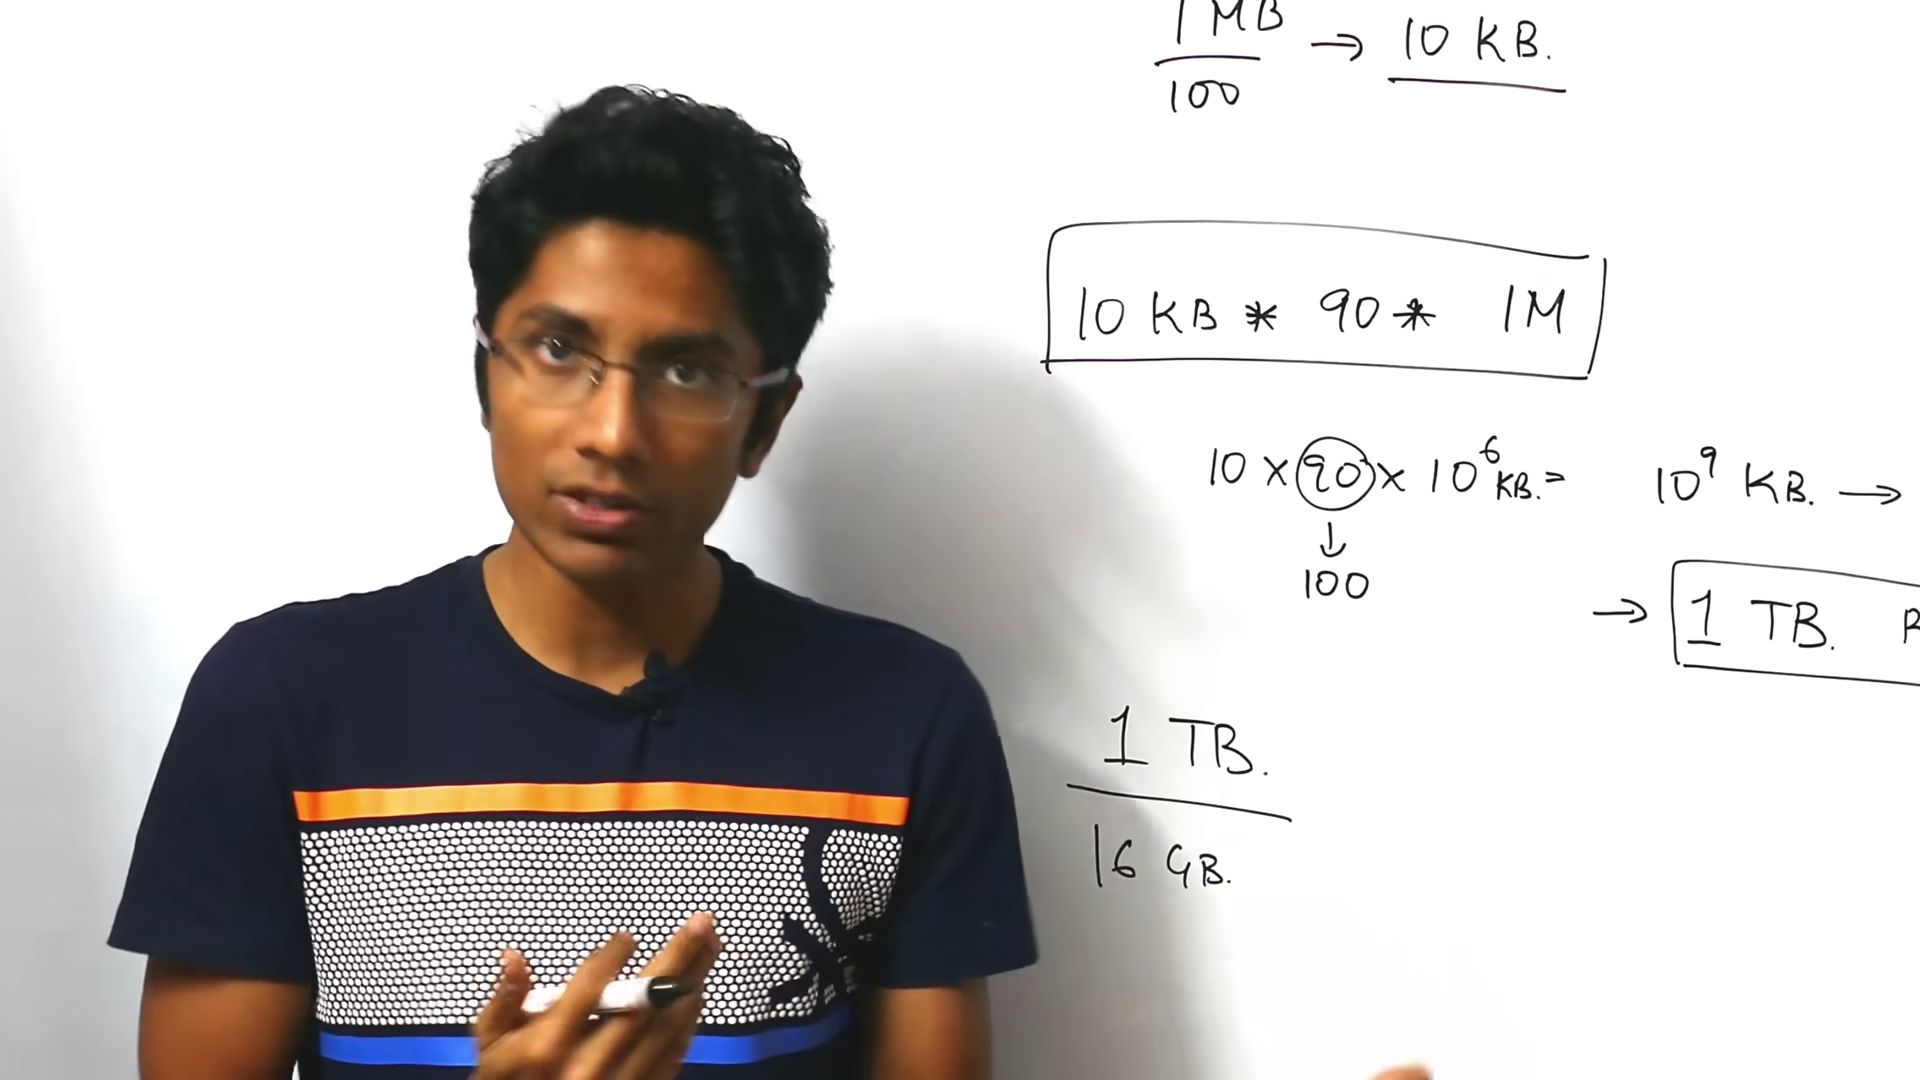 1 MB
100
→ 10 KB.
10 KB * 90 * 1M
10 x 90 x 10⁶ KB. = 10⁹ KB. →
↓
100
→ 1 TB.
1 TB.
16 GB.